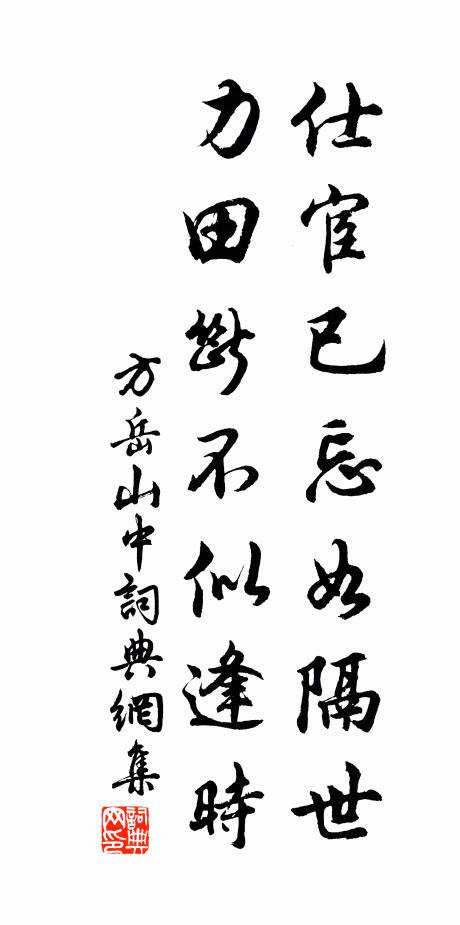 仕宦已忘如隔世
力田断不似逢時
方岳山中詞典網集
詞典
网印